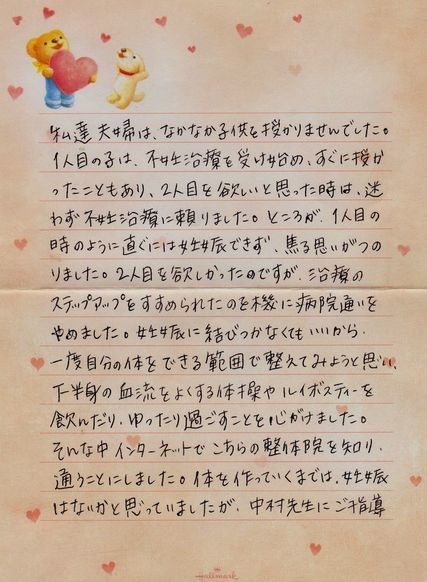 私達夫婦は、なかなか子供を授かりませんでした。
1人目の子は、不妊治療を受け始め、すぐに授か
ったこともあり、2人目を欲しいと思った時は、迷
わず不妊治療に頼りました。ところが、1人目の
時のように直ぐには妊娠できず、焦る思いがつの
りました。2人目を欲しかったのですが、治療の
ステップアップをすすめられたのを機に病院通いを
やめました。妊娠に結びつかなくてもいいから、
一度自分の体をできる範囲で整えてみようと思い、
下半身の血流をよくする体操やルイボスティーを
飲んだり、ゆったり過ごすことを心がけました。
そんな中インターネットでこちらの整体院を知り、
通うことにしました。体を作っていくまでは、妊娠
はないかと思っていましたが、中村先生にご指導
Hallmark